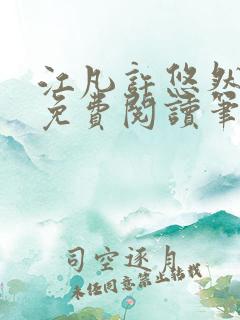 江凡許悠然
免費閱讀筆
司空逐月
未经同意禁止转载